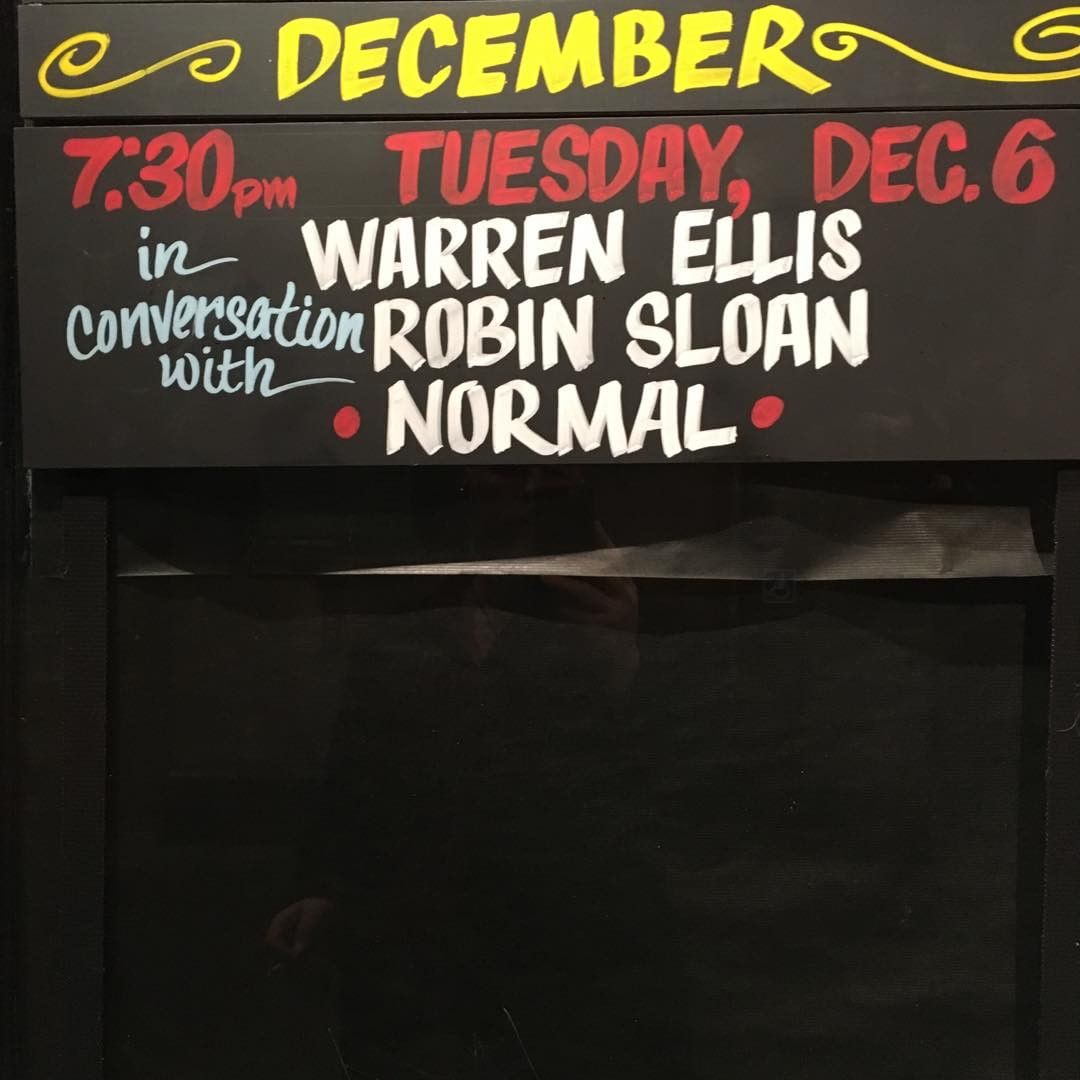 DECEMBER
7:30pm TUESDAY, DEC. 6
WARREN ELLIS
in conversation with ROBIN SLOAN
• NORMAL •